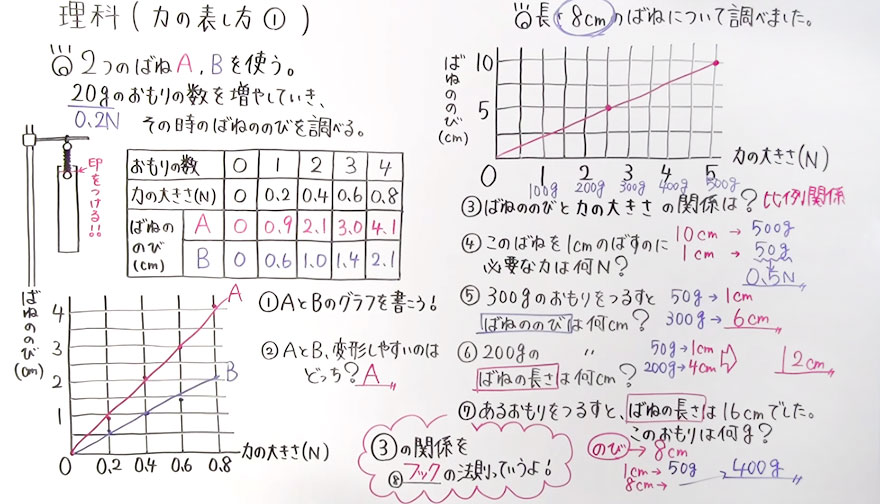 理科(力の表し方①)
◎2つのばねA,Bを使う。
20gのおもりの数を増やしていき、
0.2N
その時のばねののびを調べる。
印をつける!!
おもりの数 0 1 2 3 4
力の大きさ(N) 0 0.2 0.4 0.6 0.8
ばねののび(cm) A 0 0.9 2.1 3.0 4.1
B 0 0.6 1.0 1.4 2.1
ばねののび(cm)
4
3
2
1
0 0.2 0.4 0.6 0.8
力の大きさ(N)
A
B
①AとBのグラフを書こう!
②AとB、変形しやすいのは
どっち? A
◎長さ8cmのばねについて調べました。
ばねののび(cm)
10
5
0 1 2 3 4 5
力の大きさ(N)
100g 200g 300g 400g 500g
③ばねののびと力の大きさの関係は? 比例関係
④このばねを1cmのばすのに
必要な力は何N?
10cm → 500g
1cm → 50g
↓
0.5N
⑤300gのおもりをつるすと
ばねののびは何cm?
50g→1cm
300g→6cm
⑥200gの 〃
ばねの長さは何cm?
50g→1cm
200g→4cm
⇨ 12cm
⑦あるおもりをつるすと、ばねの長さは16cmでした。
このおもりは何g?
のび→8cm
1cm→50g
8cm→400g
③の関係を
⑧フックの法則っていうよ!